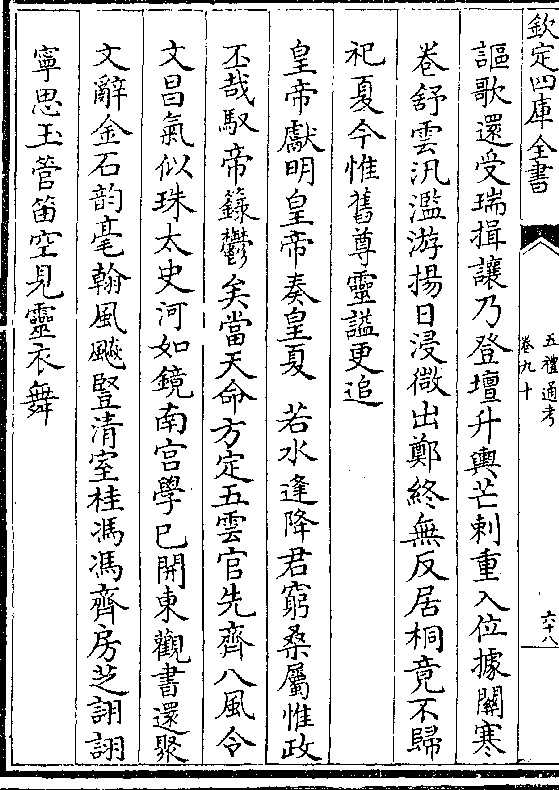 欽定四庫全書
五禮通考
卷九十
六十八
謳歌還受瑞揖讓乃登壇升輿芒刺重入位據關寒
卷舒雲汎濫游揚日浸微出鄭終無反居桐竟不歸
祀夏今惟舊尊靈諡更追
皇帝獻明皇帝奏皇夏　若水逢降君窮桑屬惟政
丕哉馭帝籙鬱矣當天命方定五雲官先齊八風令
文昌氣似珠太史河如鏡南宮學已開東觀書還聚
文辭金石韵毫翰風飈豎清室桂馮馮齊房芝詡詡
寧思玉管笛空見靈衣舞